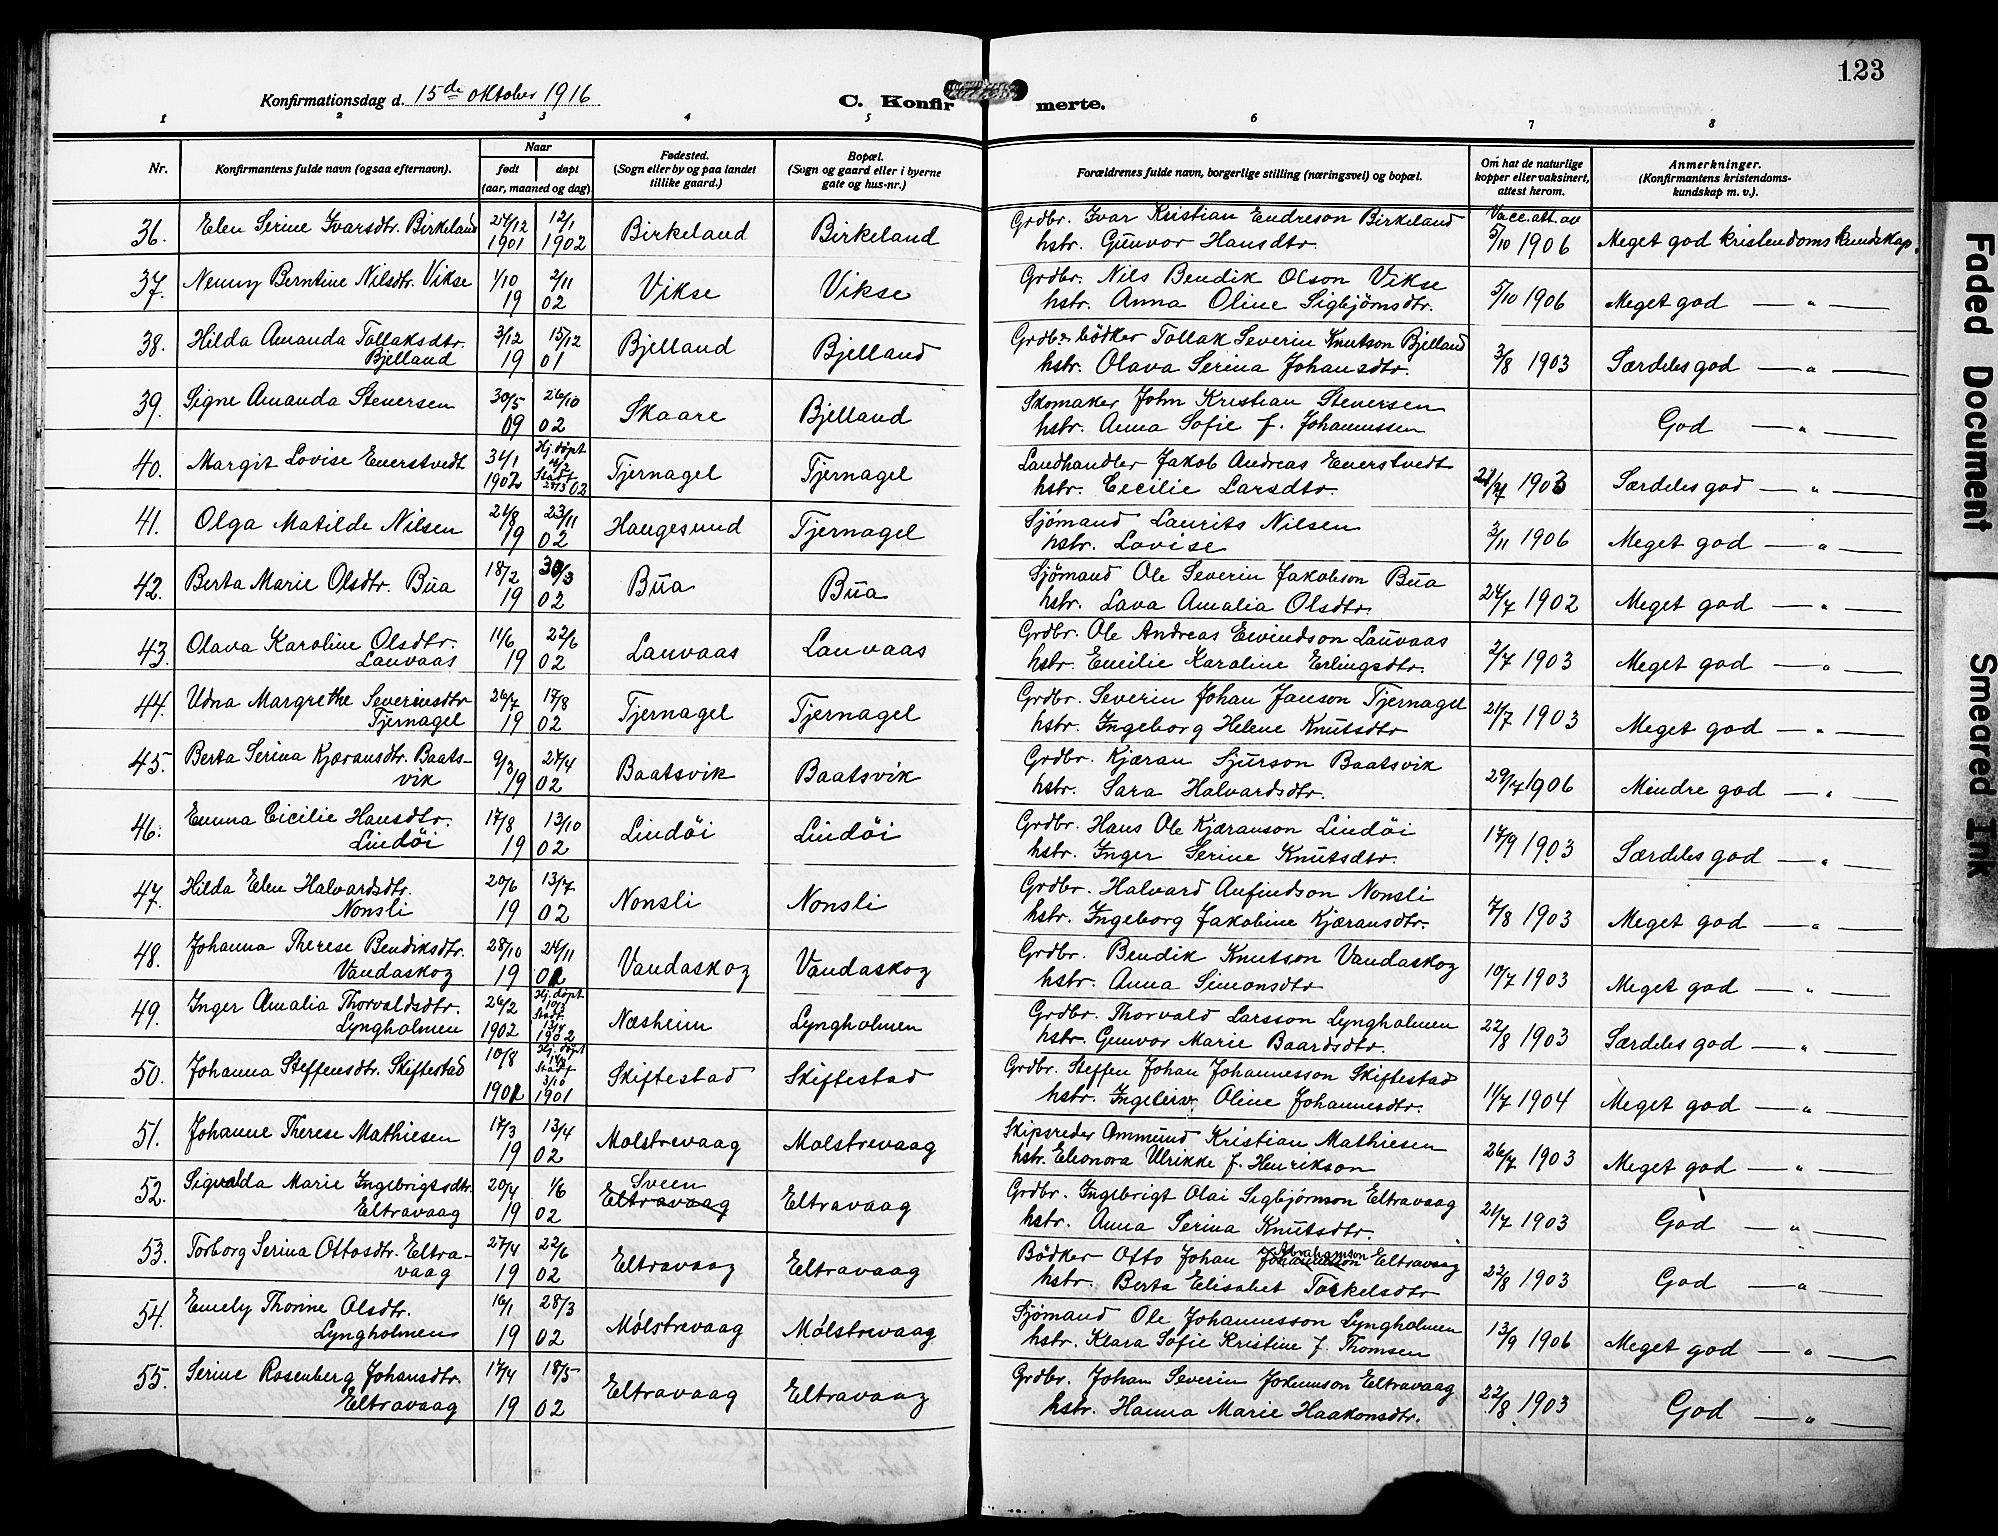 123
Konfirmationsdag d. 15de oktober 1916
C. Konfirmerte.
1 2 3 4 5 6 7 8
Nr. Konfirmantens fulde navn (ogsaa efternavn). Naar født døpt (aar, maaned og dag) Fødested. (Sogn eller by og paa landet tillike gaard.) Bopæl. (Sogn og gaard eller i byerne gate og hus-nr.) Forældrenes fulde navn, borgerlige stilling (næringsvei) og bopæl. Om hat de naturlige kopper eller vaksinert, attest herom. Anmerkninger. (Konfirmantens kristendomskundskap m. v.).
36. Elen Serine Ivarsdtr. Birkeland 27/12 1901 12/1 1902 Birkeland Birkeland Grdbr. Ivar Kristian Endreson Birkeland
hstr. Gunvor Hansdtr. Vacc. att. av 5/10 1906 Meget god kristendomskundskap.
37. Nenny Berntine Nilsdtr. Vikse 1/10 2/11 19 02 Vikse Vikse Grdbr. Nils Bendik Olson Vikse
hstr. Anna Oline Sigbjørnsdtr. 5/10 1906 Meget god — " —
38. Hilda Amanda Tollaksdtr. Bjelland 3/12 15/12 19 01 Bjelland Bjelland Grdbr. bödker Tollak Severin Knutson Bjelland
hstr. Olava Serina Johansdtr. 3/8 1903 Særdeles god — " —
39. Signe Amanda Stenersen 30/5 26/10 09 02 Skaare Bjelland Skomaker John Kristian Stenersen
hstr. Anna Sofie f. Johannessen God — " —
40. Margit Lovise Enerstvedt 31/1 1902 Hj. døpt Stadf. 02 Tjernagel Tjernagel Landhandler Jakob Andreas Enerstvedt
hstr. Cecilie Larsdtr. 1903 Særdeles god — " —
41. Olga Matilde Nilsen 21/8 23/11 19 02 Haugesund Tjernagel Sjømand Laurits Nilsen
hstr. Lovise 3/11 1906 Meget god — " —
42. Berta Marie Olsdtr. Bua 18/2 30/3 19 02 Bua Bua Sjømand Ole Severin Jakobson Bua
hstr. Lava Amalia Olsdtr. 24/7 1902 Meget god — " —
43. Olava Karoline Olsdtr. Lauvaas 11/6 22/6 19 02 Lauvaas Lauvaas Grdbr. Ole Andreas Eivindson Lauvaas
hstr. Emilie Karoline Erlingsdtr. 2/7 1903 Meget god — " —
44. Udna Margrethe Severinsdtr Tjernagel 26/7 17/8 19 02 Tjernagel Tjernagel Grdbr. Severin Johan Janson Tjernagel
hstr. Ingeborg Helene Knutsdtr 21/7 1903 Meget god — " —
45. Berta Serina Kjæransdtr. Baatsvik 9/3 27/4 19 02 Baatsvik Baatsvik Grdbr. Kjæran Sjurson Baatsvik
hstr. Sara Halvardsdtr. 29/7 1906 Mindre god — " —
46. Emma Cicilie Hansdtr. Lindøi 17/8 13/10 19 02 Lindøi Lindøi Grdbr. Hans Ole Kjæranson Lindøi
hstr. Inger Serine Knutsdtr. 17/9 1903 Særdeles god — " —
47. Hilda Elen Halvardsdtr. Nonsli 20/6 13/7 19 02 Nonsli Nonsli Grdbr. Halvard Anfindson Nonsli
hstr. Ingeborg Jakobine Kjæransdtr. 7/8 1903 Meget god — " —
48. Johanna Therese Bendiksdtr. Vandaskog 28/10 24/11 19 01 Vandaskog Vandaskog Grdbr. Bendik Knutson Vandaskog
hstr. Anna Simonsdtr 10/7 1903 Meget god — " —
49. Inger Amalia Thorvaldsdtr. Lyngholmen 26/2 1902 Hj. døpt 10/3 Stadf. 13/4 1902 Næsheim Lyngholmen Grdbr. Thorvald Larsson Lyngholmen
hstr. Gunvor Marie Baardsdtr. 22/8 1903 Særdeles god — " —
50. Johanna Steffensdtr. Skiftestad 10/8 1901 Hj. døpt Stadf. 3/10 1901 Skiftestad Skiftestad Grdbr. Steffen Johan Johannesson Skiftestad
hstr. Ingeleiv Oline Johannesdtr. 11/7 1904 Meget god — "
51. Johanne Therese Mathiesen 17/3 13/4 19 02 Molstrevaag Molstrevaag Skipsreder Ommund Kristian Mathiesen
hstr. Eleonora Ulrikke f. Henrikson 26/7 1903 Meget god — " —
52. Sigvalda Marie Ingebrigtsdtr. Eltravaag 20/4 1/6 19 02 Sveen Eltravaag Eltravaag Grdbr. Ingebrigt Olai Sigbjørnson Eltravaag
hstr. Anna Serina Knutsdtr. 21/7 1903 God — " —
53. Torborg Serina Ottosdtr. Eltravaag 27/4 22/6 19 02 Eltravaag Eltravaag Bödker Otto Johan Johannesson Abrahamson Eltravaag
hstr. Berta Elisabet Torkelsdtr 22/8 1903 God — "
54. Emely Thorine Olsdtr. Lyngholmen 16/1 28/3 19 02 Mølstrevaag Mølstrevaag Sjømand Ole Johannesson Lyngholmen
hstr. Klara Sofie Kristine f. Thomsen 13/9 1906 Meget god — " —
55. Serine Rosenberg Johansdtr. Eltravaag 17/4 18/5 19 02 Eltravaag Eltravaag Grdbr. Johan Severin Johnson Eltravaag
hstr. Hanna Marie Haakonsdtr. 22/8 1903 God — " —
Faded Document
Smeared Ink